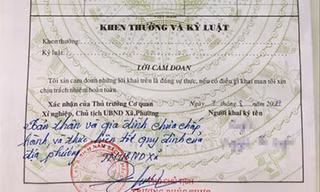 KHEN THƯỞNG VÀ KỶ LUẬT
Khen thưởng:
Kỷ luật:
LỜI CAM ĐOAN
Tôi xin cam đoan những lời khai trên là đúng sự thực, nếu có điều gì khai man tôi xin
chịu trách nhiệm hoàn toàn.
Xác nhận của Thủ trưởng Cơ quan
Xí nghiệp, Chủ tịch UBND Xã, Phường
Người khai ký tên
Bản thân và gia đình chưa chấp
hành, và thực hiện tốt quy định của
địa phương.
TM UBND xã